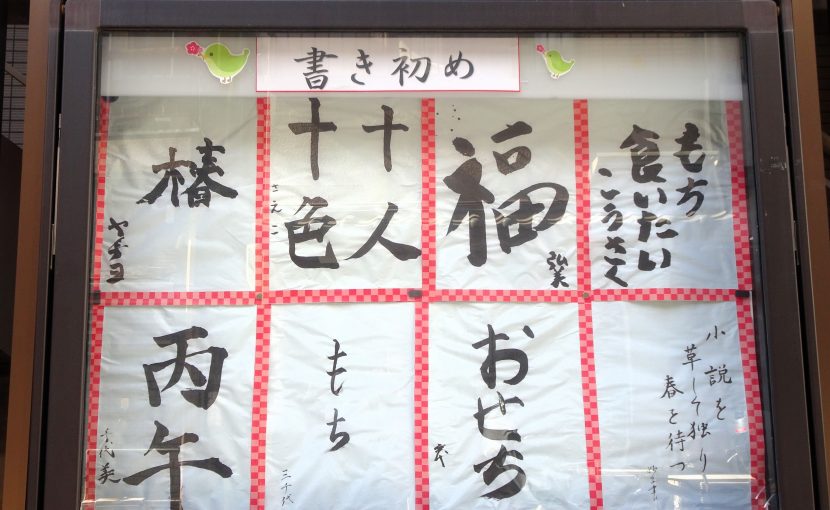 書き初め
もち
食いたい
こうさく
福
弘美
十人
十色
さえこ
椿
ヤヱヨ
小説を
草して独り
春を待つ
おせち
もち
三千代
丙午
千代美